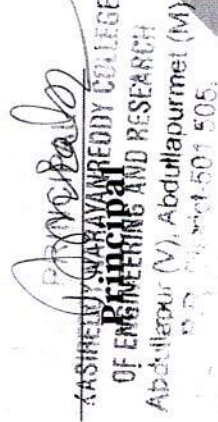 PRINCIPAL
KASIREDDY NARAYANREDDY COLLEGE
Principal
OF ENGINEERING AND RESEARCH
Abdullapur (V), Abdullapurmet (M)
R.R. District-501 505.